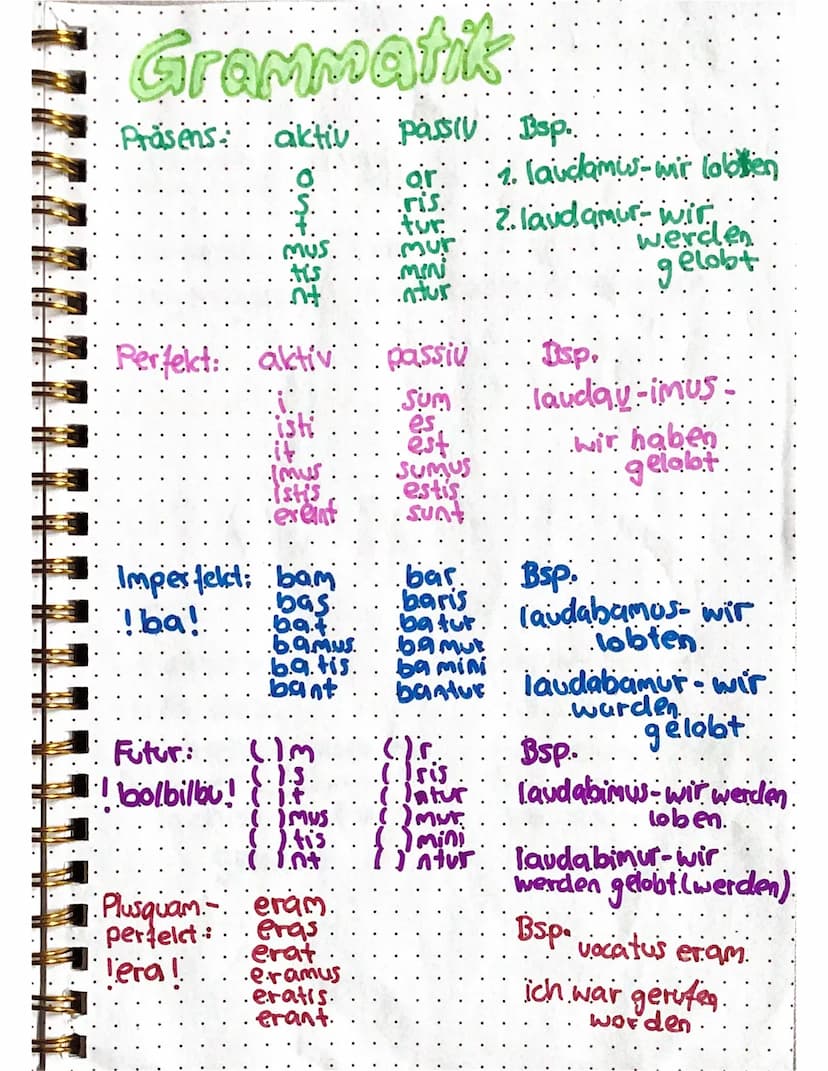 Grammatik
Präsens: aktiv passiv Bsp.
o or 1. laudamus - wir loben
s ris
t tur 2. laudamur - wir
mus mur werden
tis mini gelobt
nt ntur
Perfekt: aktiv passiv Bsp.
i sum laudav-imus -
isti es
it est wir haben
imus sumus gelobt
istis estis
erant sunt
Imperfekt: bam bar Bsp.
bas baris laudabamus - wir
!ba! bat batur lobten
bamus bamur
batis bamini laudabamur - wir
bant bantur wurden
gelobt
Futur: ( )m ( )r Bsp.
( )s ( )ris
!bo/bi/bu! ( )t ( )ntur laudabimus - wir werden
( )mus ( )mur loben
( )tis ( )mini
( )nt ( )ntur laudabimur - wir
werden gelobt (werden)
Plusquam- eram
perfekt: eras Bsp.
erat vocatus eram
!era! eramus
eratis ich war gerufen
erant worden